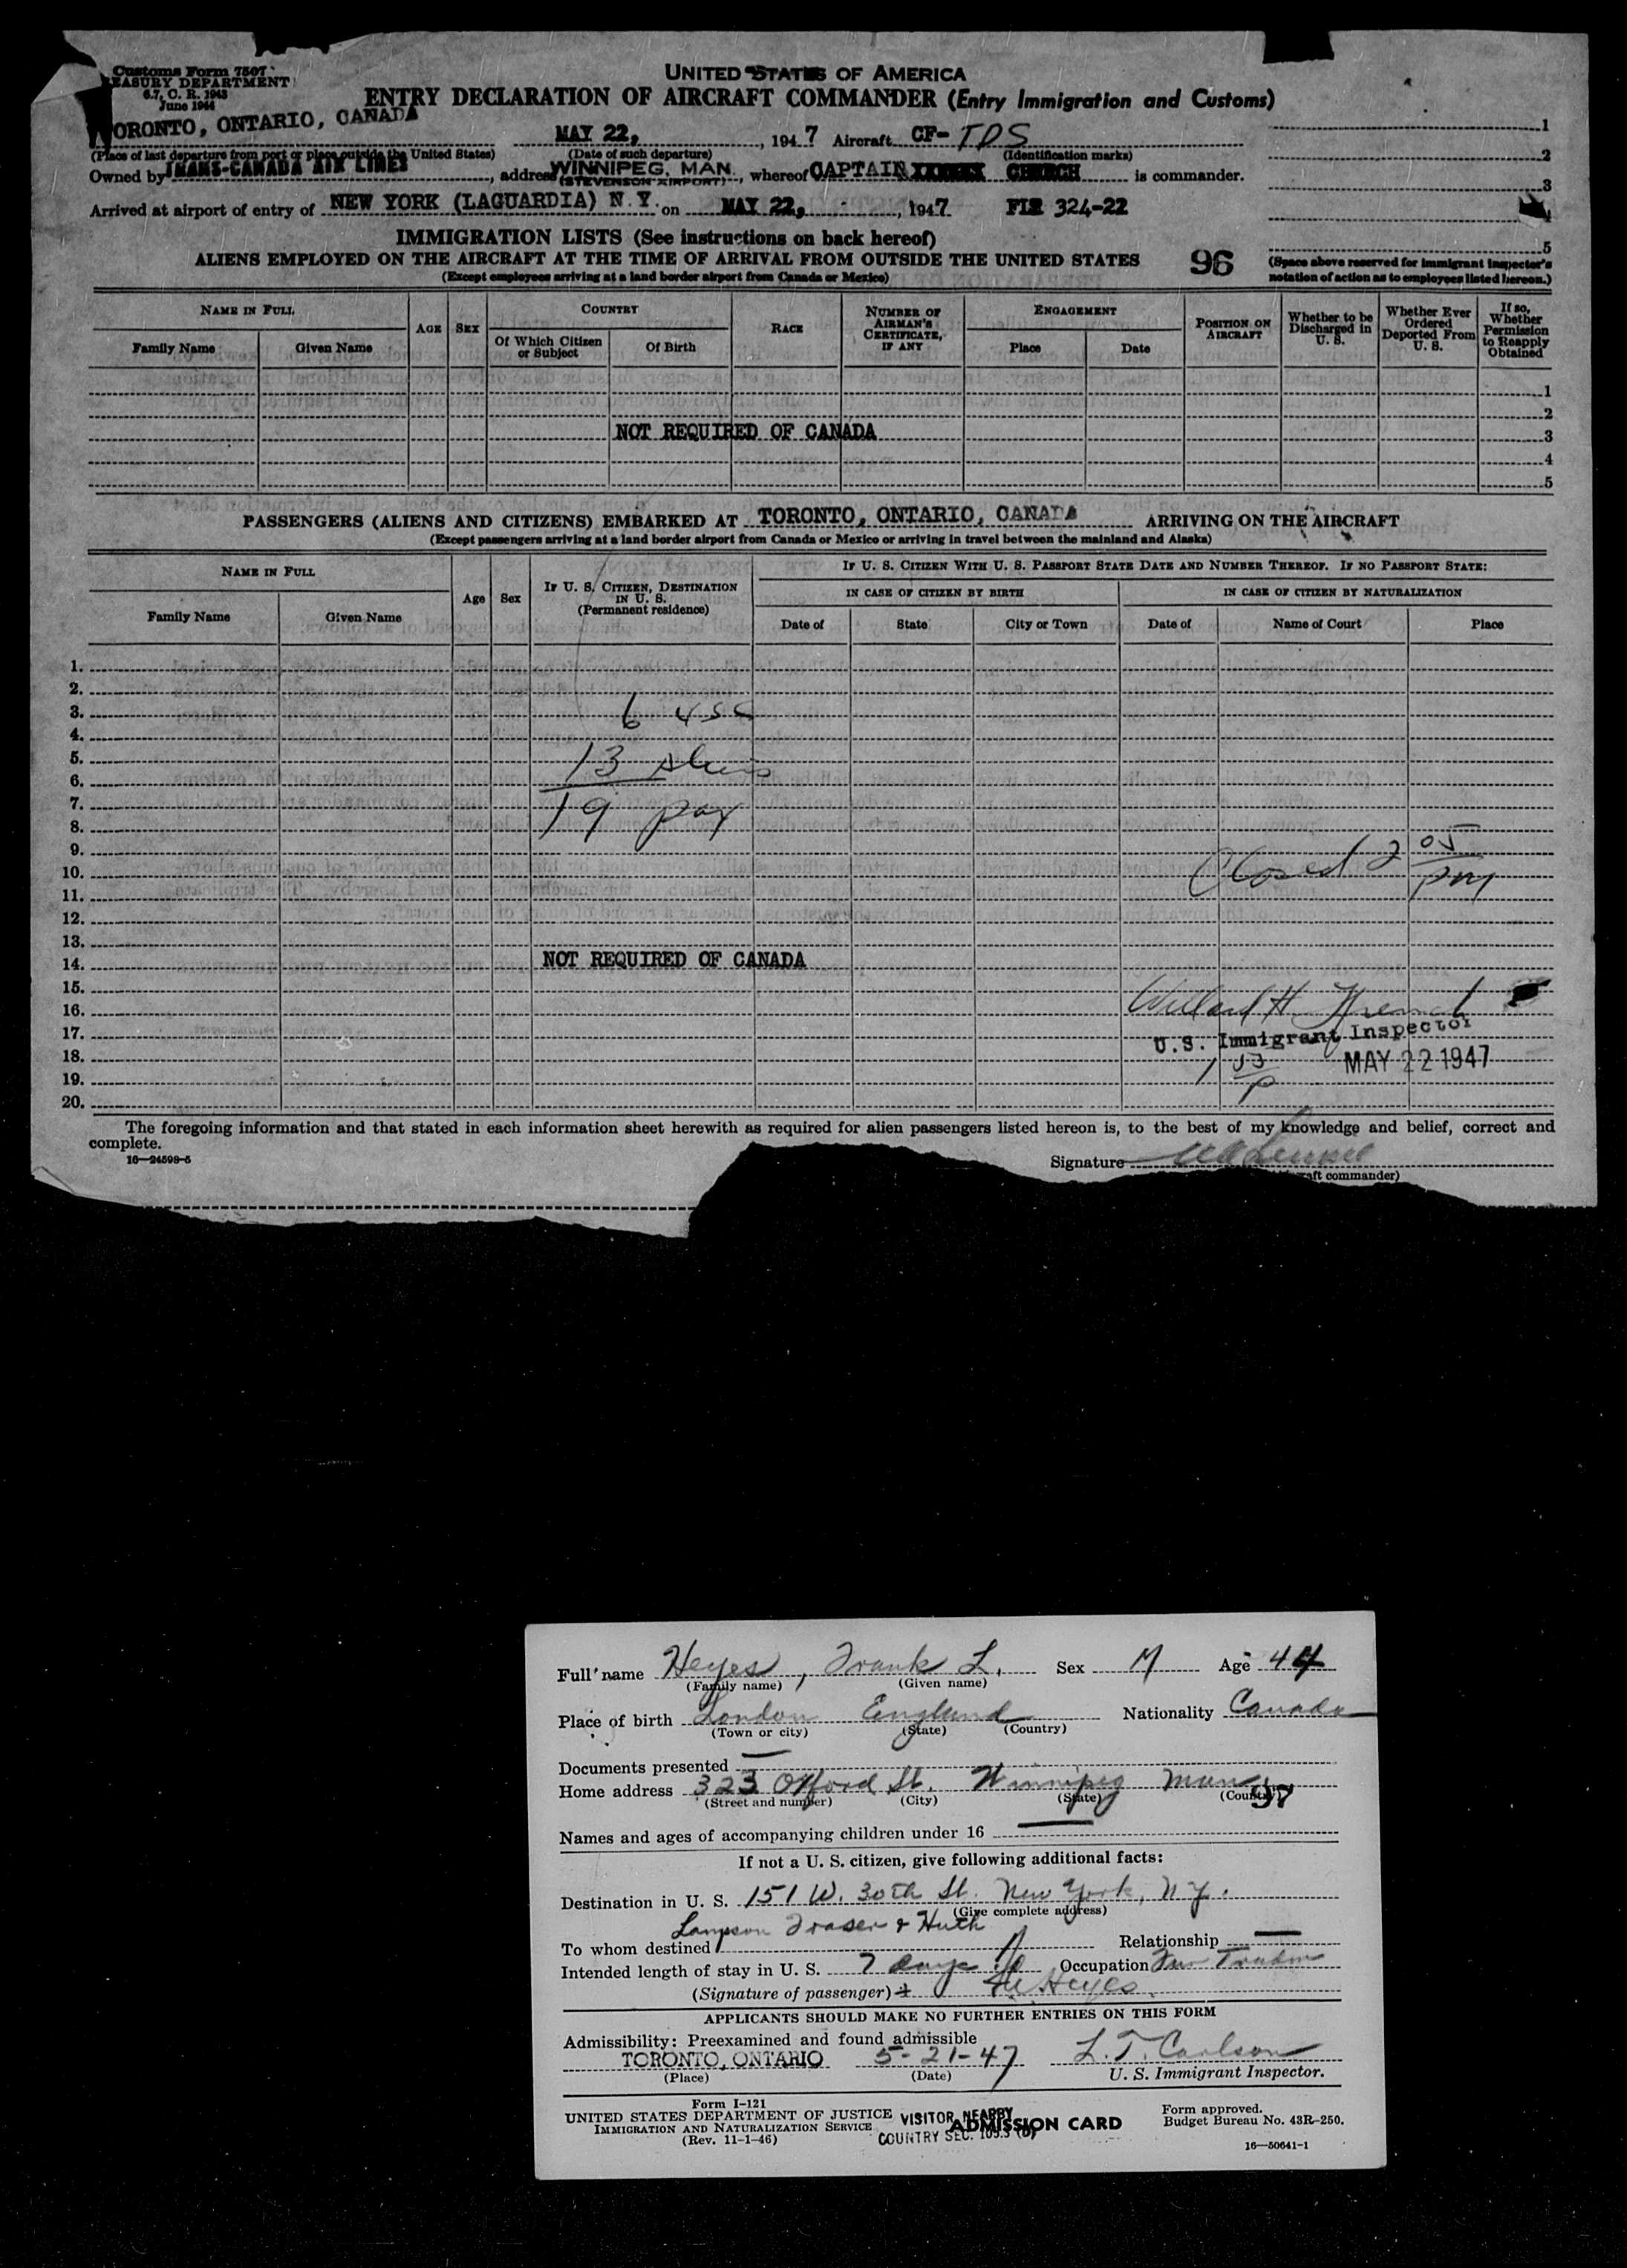 Customs Form 7507
TREASURY DEPARTMENT
6.7, C. R. 1943
June 1944
UNITED STATES OF AMERICA
ENTRY DECLARATION OF AIRCRAFT COMMANDER (Entry Immigration and Customs)
TORONTO, ONTARIO, CANADA MAY 22, , 1947 Aircraft CF-TDS
(Place of last departure from port or place outside the United States) (Date of such departure) (Identification marks)
Owned by TRANS-CANADA AIR LINES, address WINNIPEG, MAN. (STEVENSON AIRPORT), whereof CAPTAIN CHURCH is commander.
Arrived at airport of entry of NEW YORK (LAGUARDIA) N.Y. on MAY 22, , 1947 324-22
1
2
3
4
5
IMMIGRATION LISTS (See instructions on back hereof)
ALIENS EMPLOYED ON THE AIRCRAFT AT THE TIME OF ARRIVAL FROM OUTSIDE THE UNITED STATES 96
(Space above reserved for immigrant inspector's notation of action as to employees listed hereon.)
(Except employees arriving at a land border airport from Canada or Mexico)
NAME IN FULL
Family Name Given Name
AGE SEX
COUNTRY
Of Which Citizen or Subject Of Birth
RACE
NUMBER OF AIRMAN'S CERTIFICATE, IF ANY
ENGAGEMENT
Place Date
POSITION ON AIRCRAFT
Whether to be Discharged in U. S.
Whether Ever Ordered Deported From U. S.
If so, Whether Permission to Reapply Obtained
1
2
NOT REQUIRED OF CANADA 3
4
5
PASSENGERS (ALIENS AND CITIZENS) EMBARKED AT TORONTO, ONTARIO, CANADA ARRIVING ON THE AIRCRAFT
(Except passengers arriving at a land border airport from Canada or Mexico or arriving in travel between the mainland and Alaska)
NAME IN FULL
Family Name Given Name
Age Sex
IF U. S. CITIZEN, DESTINATION IN U. S. (Permanent residence)
IF U. S. CITIZEN WITH U. S. PASSPORT STATE DATE AND NUMBER THEREOF. IF NO PASSPORT STATE:
IN CASE OF CITIZEN BY BIRTH IN CASE OF CITIZEN BY NATURALIZATION
Date of State City or Town Date of Name of Court Place
1.
2.
3. 6 USC
4.
5. 13 aliens
6.
7. 19 pax
8.
9.
10. Closed 2 05 pm
11.
12.
13.
14. NOT REQUIRED OF CANADA
15.
16. Willard H. French
17. U.S. Immigrant Inspector
18. MAY 22 1947
19.
20.
The foregoing information and that stated in each information sheet herewith as required for alien passengers listed hereon is, to the best of my knowledge and belief, correct and
complete.
16—24598-5
Signature
aft commander)
Full name Heyes, Frank L. Sex M Age 44
(Family name) (Given name)
Place of birth London England Nationality Canada
(Town or city) (State) (Country)
Documents presented —
Home address 323 Oxford St. Winnipeg Man 97
(Street and number) (City) (State) (Country)
Names and ages of accompanying children under 16 —
If not a U. S. citizen, give following additional facts:
Destination in U. S. 151 W. 30th St. New York, N.Y.
(Give complete address)
Lampson Fraser & Huth
To whom destined Relationship —
Intended length of stay in U. S. 7 days Occupation Fur Trader
(Signature of passenger) Heyes
APPLICANTS SHOULD MAKE NO FURTHER ENTRIES ON THIS FORM
Admissibility: Preexamined and found admissible
TORONTO, ONTARIO 5-21-47 L. T. Carlson
(Place) (Date) U. S. Immigrant Inspector.
Form I-121
UNITED STATES DEPARTMENT OF JUSTICE
IMMIGRATION AND NATURALIZATION SERVICE
(Rev. 11-1-46)
VISITOR NEARBY
ADMISSION CARD
COUNTRY SEC.
Form approved.
Budget Bureau No. 43R-250.
16—50641-1